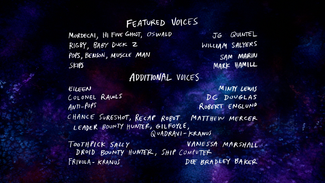 Featured Voices
Mordecai, Hi Five Ghost, Oswald JG Quintel
Rigby, Baby Duck 2 William Salyers
Pops, Benson, Muscle Man Sam Marin
Skips Mark Hamill
Additional Voices
Eileen Minty Lewis
Colonel Rawls DC Douglas
Anti-Pops Robert Englund
Chance Sureshot, Recap Robot Matthew Mercer
Leader Bounty Hunter, Gilfoyle,
Quadravi-Kranus
Toothpick Sally Vanessa Marshall
Droid Bounty Hunter, Ship Computer
Frivola-Kranus Dee Bradley Baker